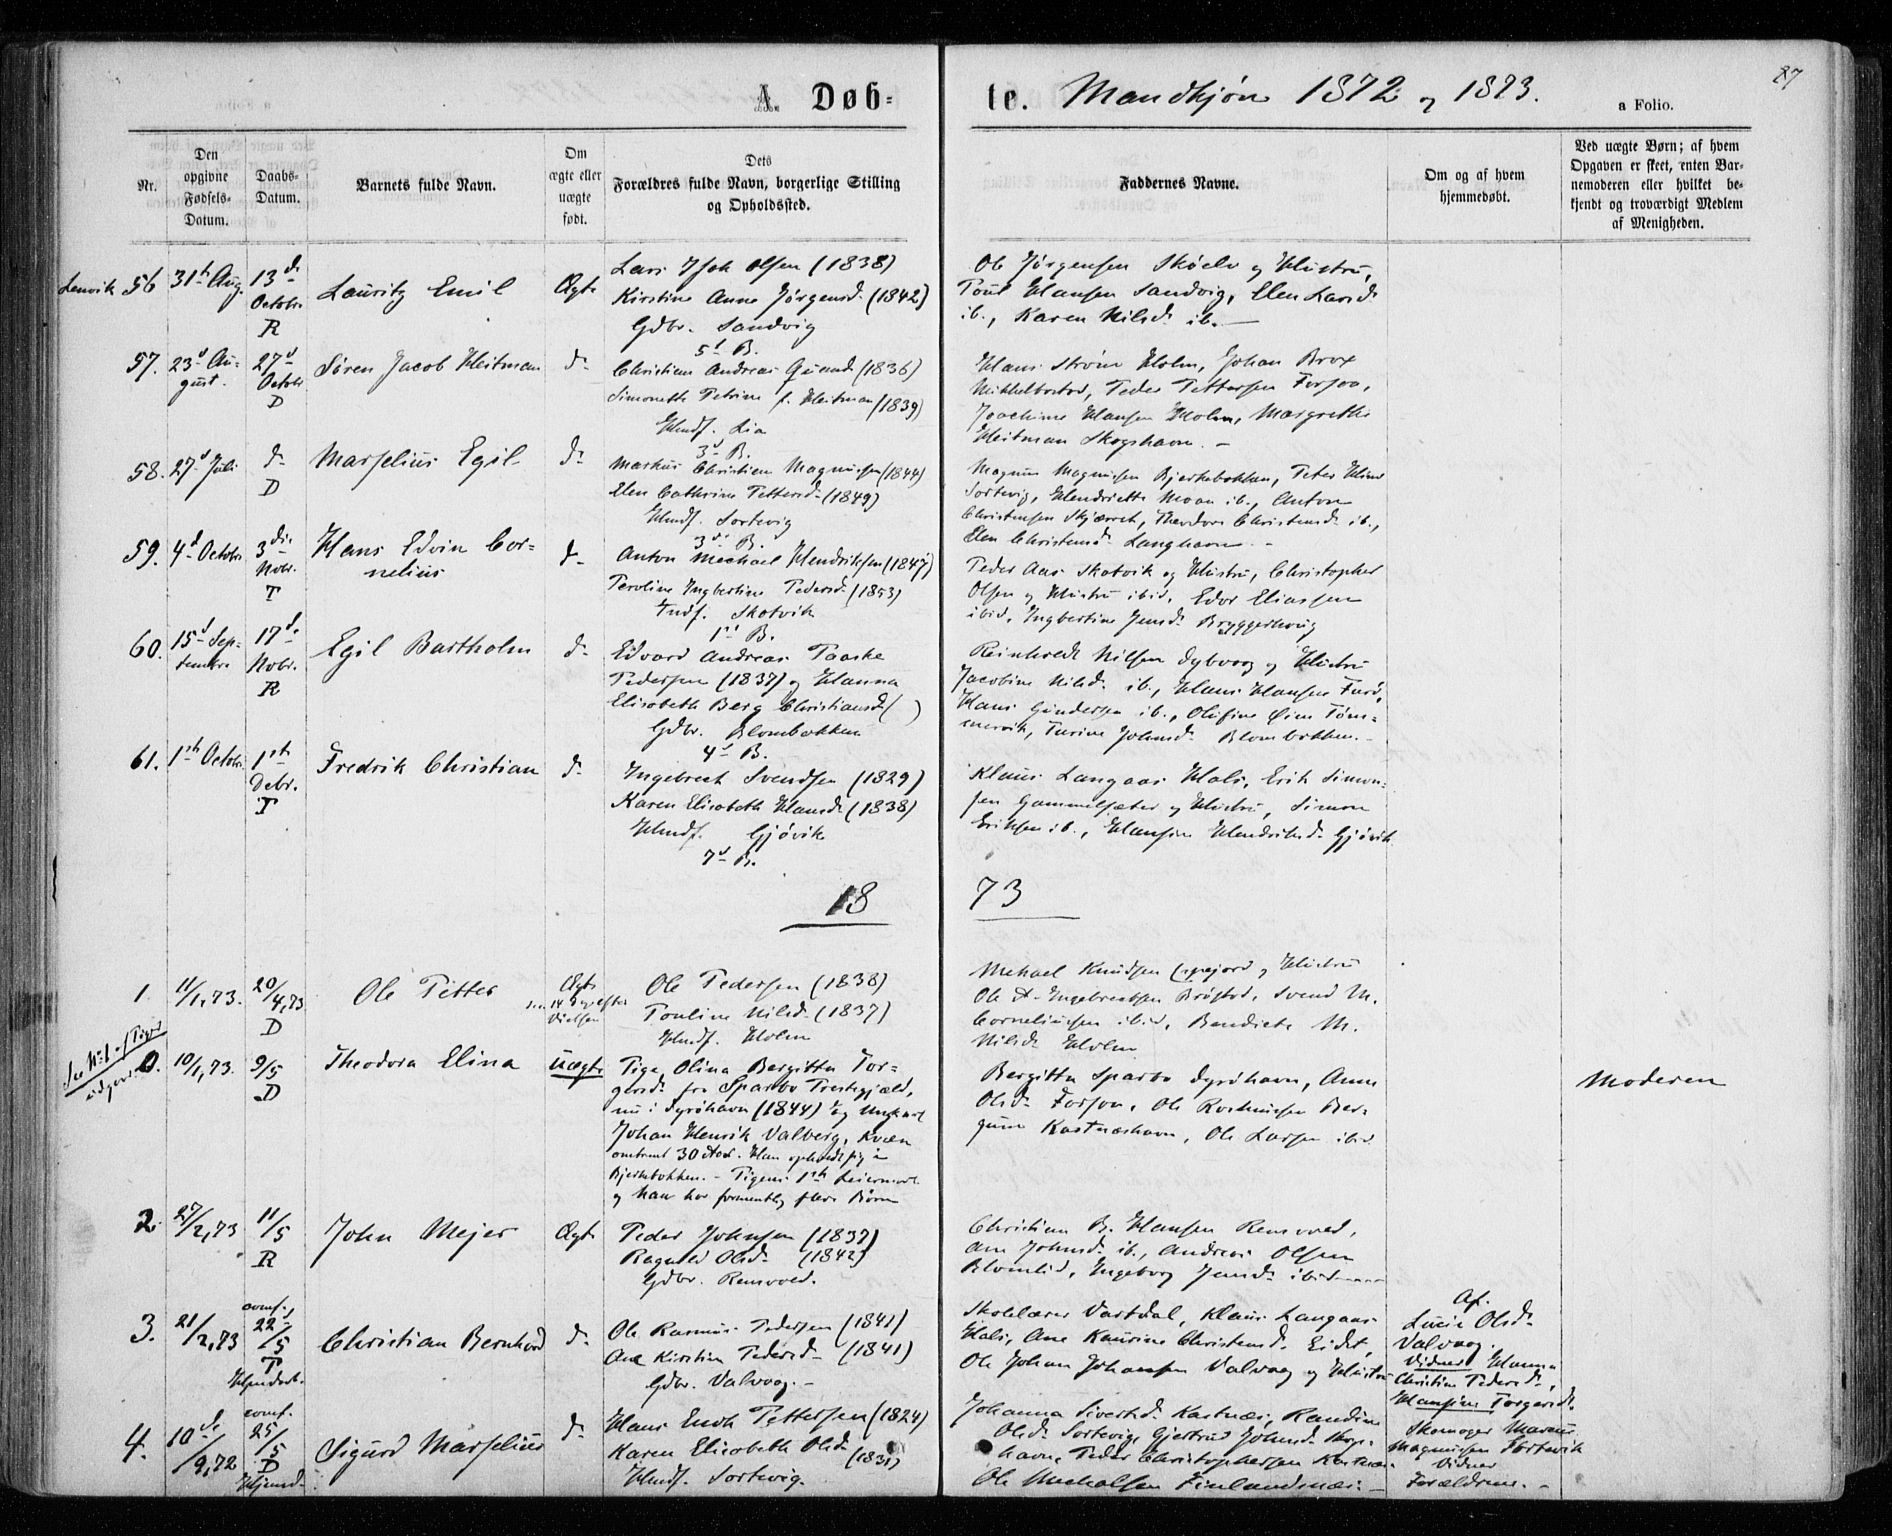 87
A. Døb-
te. Mandkjøn 1872 og 1873.
a Folio.
Nr.
Den
opgivne
Fødsels-
Datum.
Daabs-
Datum.
Barnets fulde Navn.
Om
ægte eller
uægte
født.
Dets
Forældres fulde Navn, borgerlige Stilling
og Opholdssted.
Faddernes Navne.
Om og af hvem
hjemmedøbt.
Ved uægte Børn; af hvem
Opgaven er skeet, enten Bar-
nemoderen eller hvilket be-
kjendt og troværdigt Medlem
af Menigheden.
Lenvik 56 31te Aug. 13de
Octobr.
R
Lauritz Emil
Ægte
Lars Olsen (1838)
Kirstine Anne Jørgensd. (1842)
Gdbr. Sandvig
5te B.
Ole Jørgensen Skøelv og Hustru,
Poul Hansen Sandvig, Elen Larsd.
ib., Karen Nilsd. ib. —
57. 23de Au-
gust.
27de
Octobr.
D
Søren Jacob Heitman
do
Christian Andreas Qvand (1836)
Simonette Petrine f. Heitman (1839)
Hmdf. Lia
3de B.
Hans Strøm Holm, Johan Brox
Mikkelbostad, Peder Pettersen Forsøa,
Joachime Hansen Holm, Margrethe
Heitman Skogshavn. -
58. 27de Juli
do
D
Marselius Egil
do
Markus Christian Magnussen (1844)
Elen Cathrine Pettersd. (1849)
Hmdf. Sortevig
3de B.
Magnus Magnusen Bjerkebakken, Peter
Sortevig, Hendriette Moan ib., Anton
Christensen Skjærvek, Theodora Christensd. ib.,
Elen Christensd. Langhavn. -
59. 4de Octobr.
3die
Nobr.
T
Hans Edvin Cor-
nelius
do
Anton Mechael Hendriksen (1847)
Peroline Ingbertine Pedersd. (1853)
Indf. Skatvik
1ste B.
Peder Aas Skatvik og Hustru, Christopher
Olsen og Hustru ibid, Edvr Eliassen
ibid, Ingbertine Jensd. Bryggerhaug
60. 15de Sep-
tember
17de
Nobr.
R
Egil Bartholm
do
Edvard Andreas Paaske
Pedersen (1837) og Hanna
Elisabeth Berg Christiansd. ( )
Gdbr. Blombakken
4de B.
Reinholdt Nilsen Dybvaag og Hustru
Jacobine Nilsd. ib., Hans Hansen
Hans Gundersen ib., Olufine Øien Tøm-
mervik, Turine Johnsd. Blombakken. -
61. 1ste Octobr.
1ste
Debr.
T
Fredrik Christian
do
Ingebregt Svendsen (1829)
Karen Elisabeth Hansd. (1838)
Hmdf. Gjøvik
7de B.
Klaus Langaas Hals, Erik Simon-
sen Gammelsæter og Hustru, Simon
Eriksen ib., Hansine Hendriksd. Gjøvik
18 73
1. 11/1, 73. 20/4, 73
D
Ole Petter
Ægte
Ole Pedersen (1838)
Pouline Nilsd. (1837)
Hmdf. Holm
Mehael Knudsen og Hustru
Ole A. Ingebregtsen Brøstad, Svend M.
Corneliussen ibid, Bendicte M.
Nilsd. Holm
0. 10/1, 73. 9/5
D
Theodora Elina
Uægte
Pige, Olina Bergitta Tor-
gersd. fra Sparbo Prestegjæld,
nu i Dyröhavn (1844) og Ungkarl
Johan Henrik Valberg, Kvæn
omtrent 30 Aar. Han opholdt sig i
Bjerkebakken. - Pigens 1ste Leiermaal
og han har formentlig flere Børn
Bergitta Sparbo Dyröhavn, Anne
Olsd. Forsøa, Ole Rasmussen Ber-
gum Kastneshavn, Ole Larsen ibid
Moderen
2. 27/2, 73 11/5
R
John Mejer
Ægte
Peder Johnsen (1837)
Ragnild Olsd. (1842)
Gdbr. Rensvold.
Christian B. Hansen Rensvold,
Ane Johnsd. ib., Andreas Olsen
Blomlid, Ingeborg Jensd. ibid
3. 21/2, 73
conf.,
22/5
T
Christian Bernhard
do
Ole Rasmus Pedersen (1841)
Ane Kirstine Pedersd. (1841)
Gdbr. Valvaag. -
Skolelærer Vartdal, Klaus Langaas
Hals, Ane Kaurine Christensd. Eidet,
Ole Johan Johansen Valvaag og Hustru
Af.
Lucie Olsd.
Valvaag.
Vidner Hanna
Christine Pedersd.,
Hansine Torgersd.
4. 10de/9, 72
conf.
25/5
D
Hjemd.
Sigurd Marselius
do
Hans Enok Pettersen (1824)
Karen Elisabeth Olsd.
(1831)
Hmdf. Sortevig.
Johanna Sivertsd. Kastnes, Randine
Olsd. Sortevig, Gjertrud Johnsd. Skogs-
havn, Peder Christophersen Kastnes.
Ole Mechalsen Finlandsnes. -
Skomager Marcus
Magnussen Sortevik
Vidner
Forældrene. -